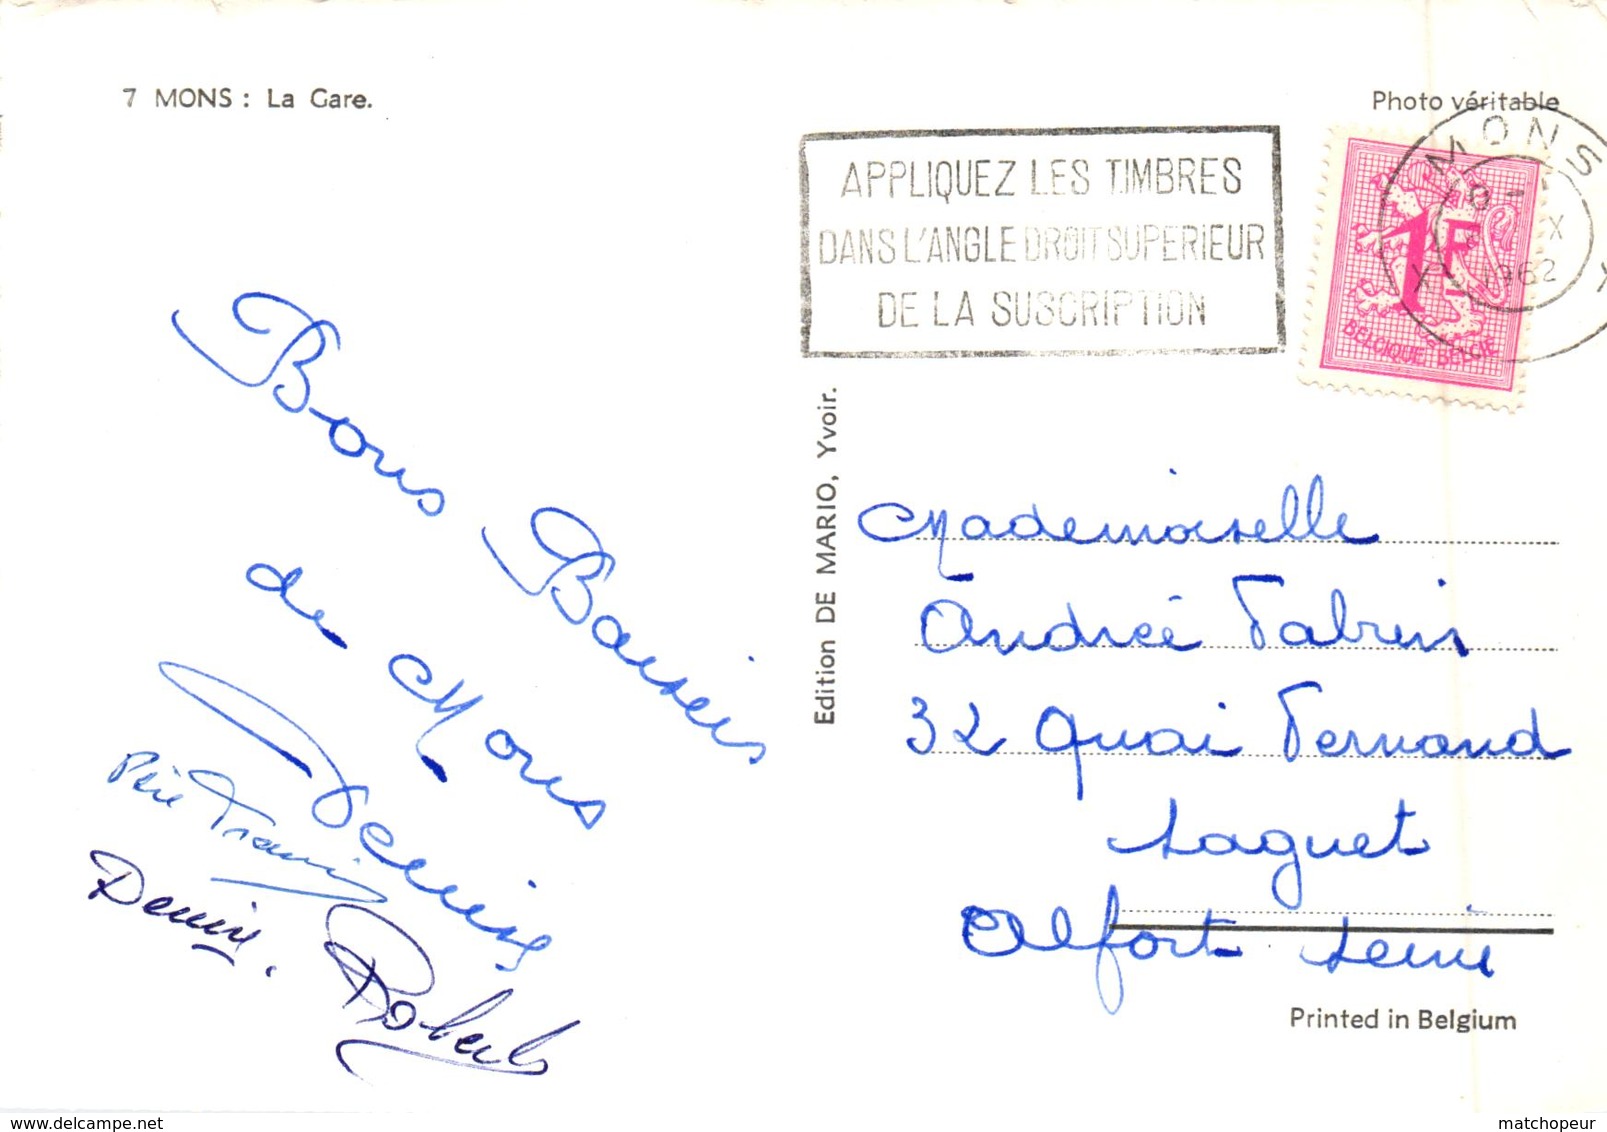 7 MONS : La Gare.
Photo véritable
APPLIQUEZ LES TIMBRES
DANS L'ANGLE DROIT SUPERIEUR
DE LA SUSCRIPTION
MONS
X
1962
1F
BELGIQUE BELGIË
Bons Baisers
de Mons
Denise.
Robert
Edition DE MARIO, Yvoir.
Mademoiselle
Andrée
32 Quai Fernand
Saguet
Alfort Seine
Printed in Belgium
delcampe.net
matchopeur